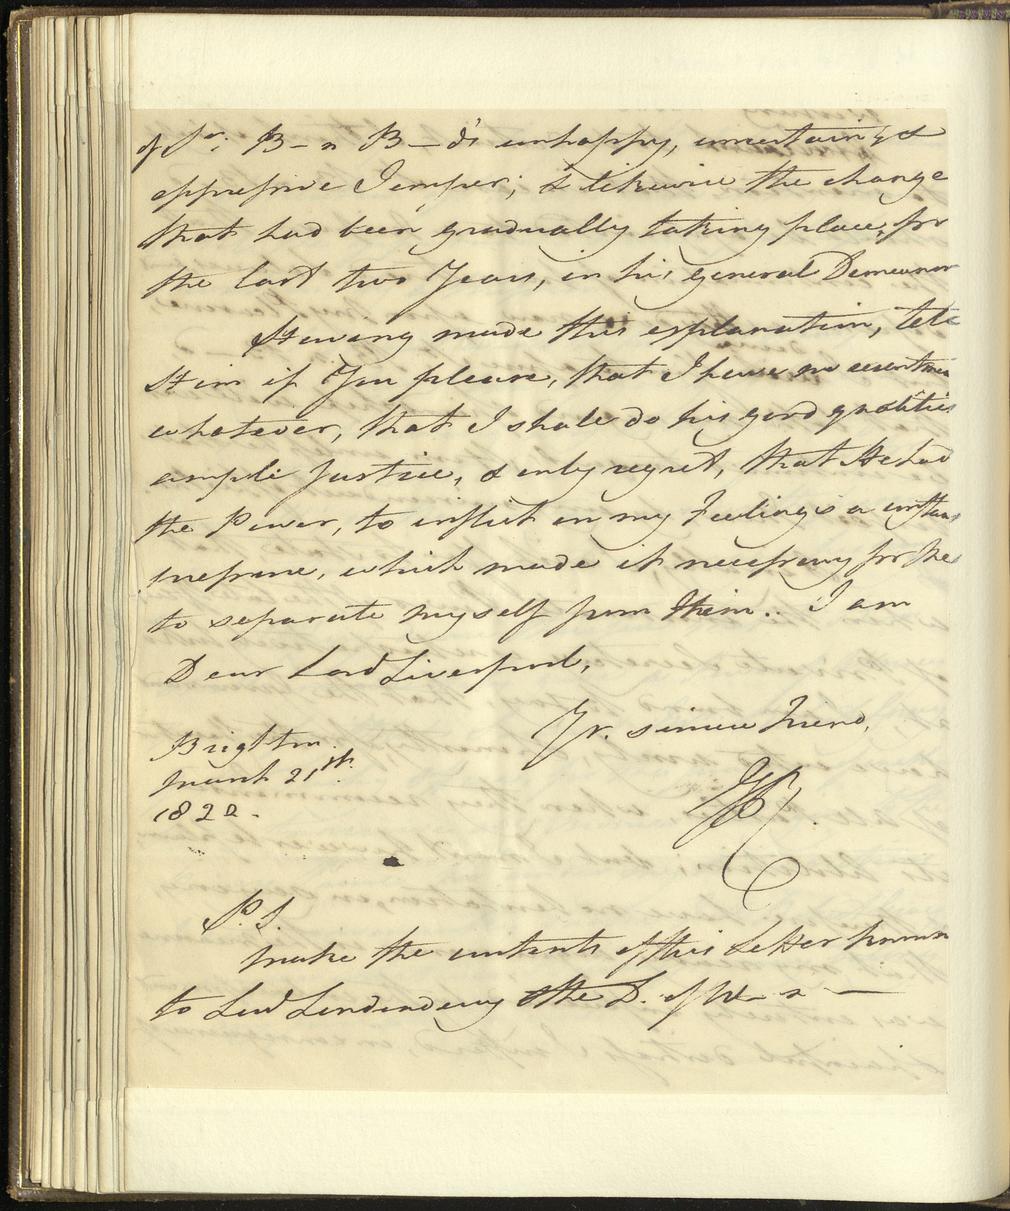 of Sr: B—n B—d's unhappy, uncertain, &
oppressive Temper; & likewise the change
that had been gradually taking place, for
the last two Years, in his general Demeanor
Having made this explanation, tell
Him if You please, that I have no resentment
whatever, that I shall do his good qualities
ample Justice, & only regret, that He had
the Power, to inflict on my Feelings a constant
pressure, which made it necessary for Me
to separate myself from Him.. I am
Dear Lord Liverpool,
Yr. sincere Friend,
Brighton
March 21st.
1822.
GR
P.S.
Make the contents of this Letter known
to Lord Londonderry & the D. of W—n —